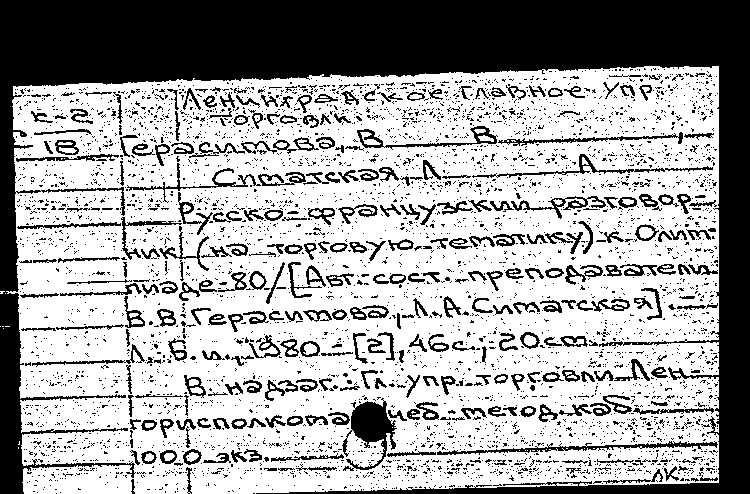 Ленинградское главное упр.
к-2 торговли.
18 Герасимова, В В ,
Симатская, Л А
Русско-французский разговор-
ник (на торговую тематику) к Олим-
пиаде-80/[Авт.-сост. преподаватели
В.В.Герасимова, Л.А.Симатская]. –
Л.: Б.и., 1980 – [2], 46с.; 20см.
В надзаг.: Гл. упр. торговли Лен-
горисполкома. чеб.-метод. каб. –
1000 экз.
ЛК